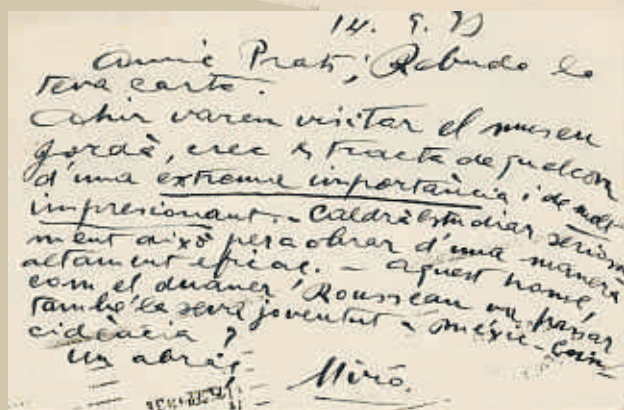 14. 9. 79
Amic Prats; Rebuda la
teva carta.
Ahir varem visitar el museu
Jordà, crec es tracta de quelcom
d'una extrema importància i de molt
impresionant. - Caldrà estudiar seriosa
ment això per a obrar d'una manera
altament eficac. - aquest home,
com el duaner Rousseau va passar
també la seva joventut a Mèxic - Coin-
cidència ?
Un abràs,
Miró.